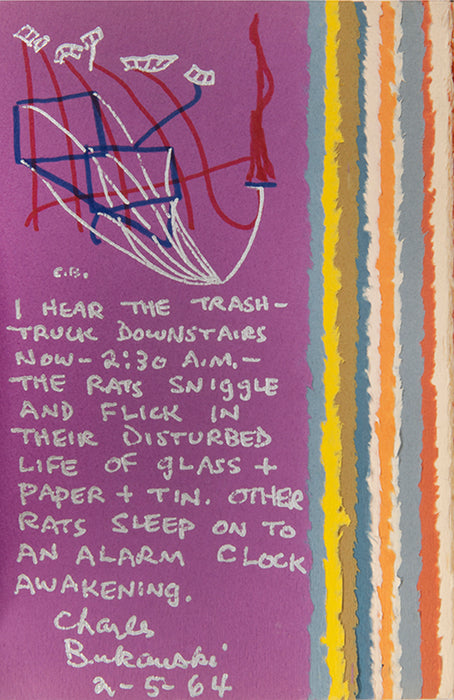 C.B.
I HEAR THE TRASH-
TRUCK DOWNSTAIRS
NOW - 2:30 A.M. -
THE RATS SNIGGLE
AND FLICK IN
THEIR DISTURBED
LIFE OF GLASS +
PAPER + TIN. OTHER
RATS SLEEP ON TO
AN ALARM CLOCK
AWAKENING.
Charles
Bukowski
2-5-64